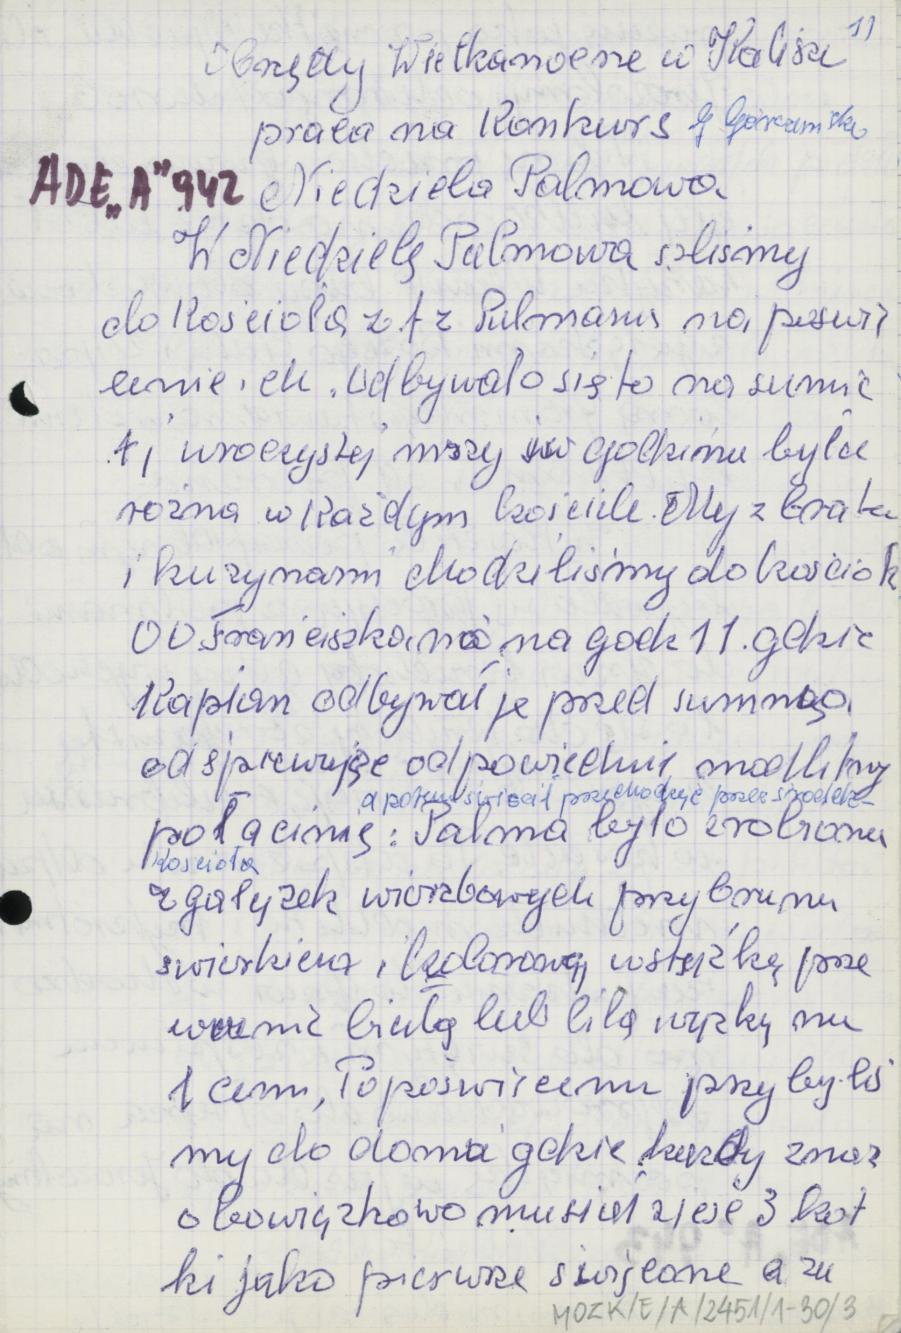 11
Obrzędy Wielkanocne w Kaliszu
praca na Konkurs G
ADE "A" 942 Niedziela Palmowa
W Niedzielę Palmową szliśmy
do Kościoła z t z Palmami na poświę
cenie ich. odbywało się to na sumie
t j uroczystej mszy św godzina była
różna w każdym kościele. My z bratem
i kuzynami chodziliśmy do kościoła
OO Franciszkanów na godz 11. gdzie
Kapłan odbywał je przed summą
odśpiewując odpowiednie modlitwy
a potem święcił przechodząc przez środek
po łacinie: Palma była zrobiona
kościoła
z gałązek wierzbowych przybrana
świerkiem i kolorową wstążką prze
ważnie białą lub lila wąską na
1 cm, Po poświęceniu przybyliś
my do domu gdzie każdy z nas
obowiązkowo musiał zjeść 3 kot
ki jako pierwsze święcone a za
MOZK/E/A/2451/1-30/3